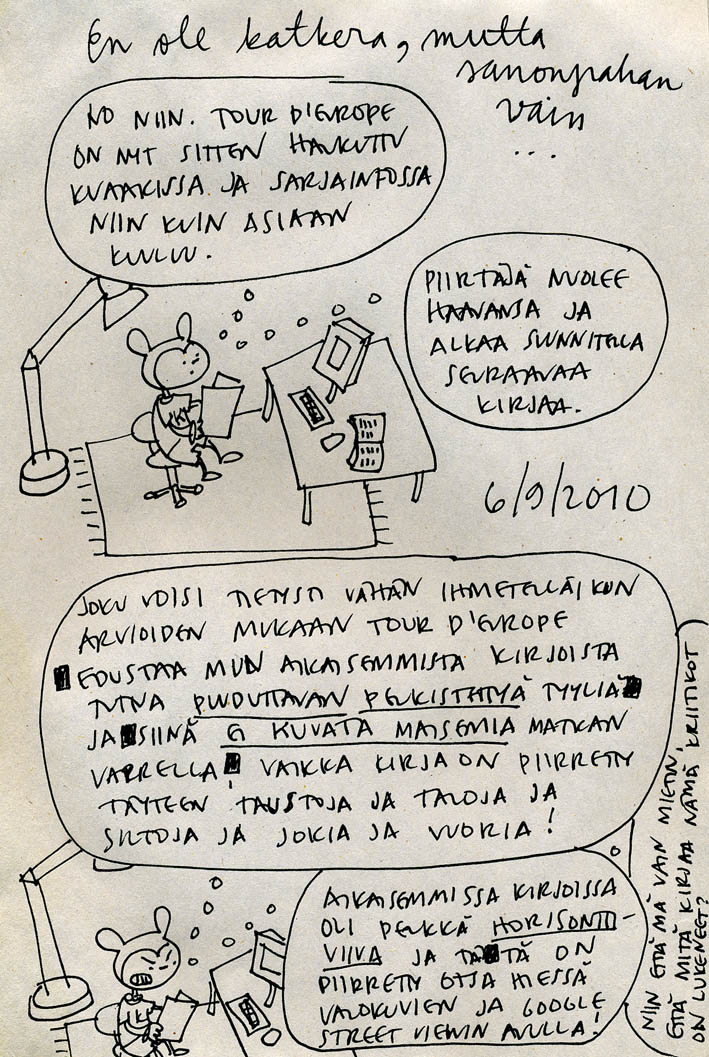 En ole katkera, mutta
sanonpahan
vain
...
NO NIIN. TOUR D'EUROPE
ON NYT SITTEN HAUKUTTU
KVAAKISSA JA SARJAINFOSSA
NIIN KUIN ASIAAN
KUULUU.
PIIRTÄJÄ NUOLEE
HAAVANSA JA
ALKAA SUUNNITELLA
SEURAAVAA
KIRJAA.
6/9/2010
JOKU VOISI TIETYSTI VÄHÄN IHMETELLÄ, KUN
ARVIOIDEN MUKAAN TOUR D'EUROPE
EDUSTAA MUN AIKAISEMMISTA KIRJOISTA
TUTTUA PUUDUTTAVAN PELKISTETTYÄ TYYLIÄ
JA SIINÄ EI KUVATA MAISEMIA MATKAN
VARRELLA, VAIKKA KIRJA ON PIIRRETTY
TÄYTEEN TAUSTOJA JA TALOJA JA
SILTOJA JA JOKIA JA VUORIA!
AIKAISEMMISSA KIRJOISSA
OLI PELKKÄ HORISONTTI-
VIIVA JA TÄTÄ ON
PIIRRETTY OTSA HIESSÄ
VALOKUVIEN JA GOOGLE
STREET VIEWIN AVULLA!
NIIN ETTÄ MÄ VAIN MIETIN,
ETTÄ MITÄ KIRJAA NÄMÄ KRIITIKOT
ON LUKENEET?